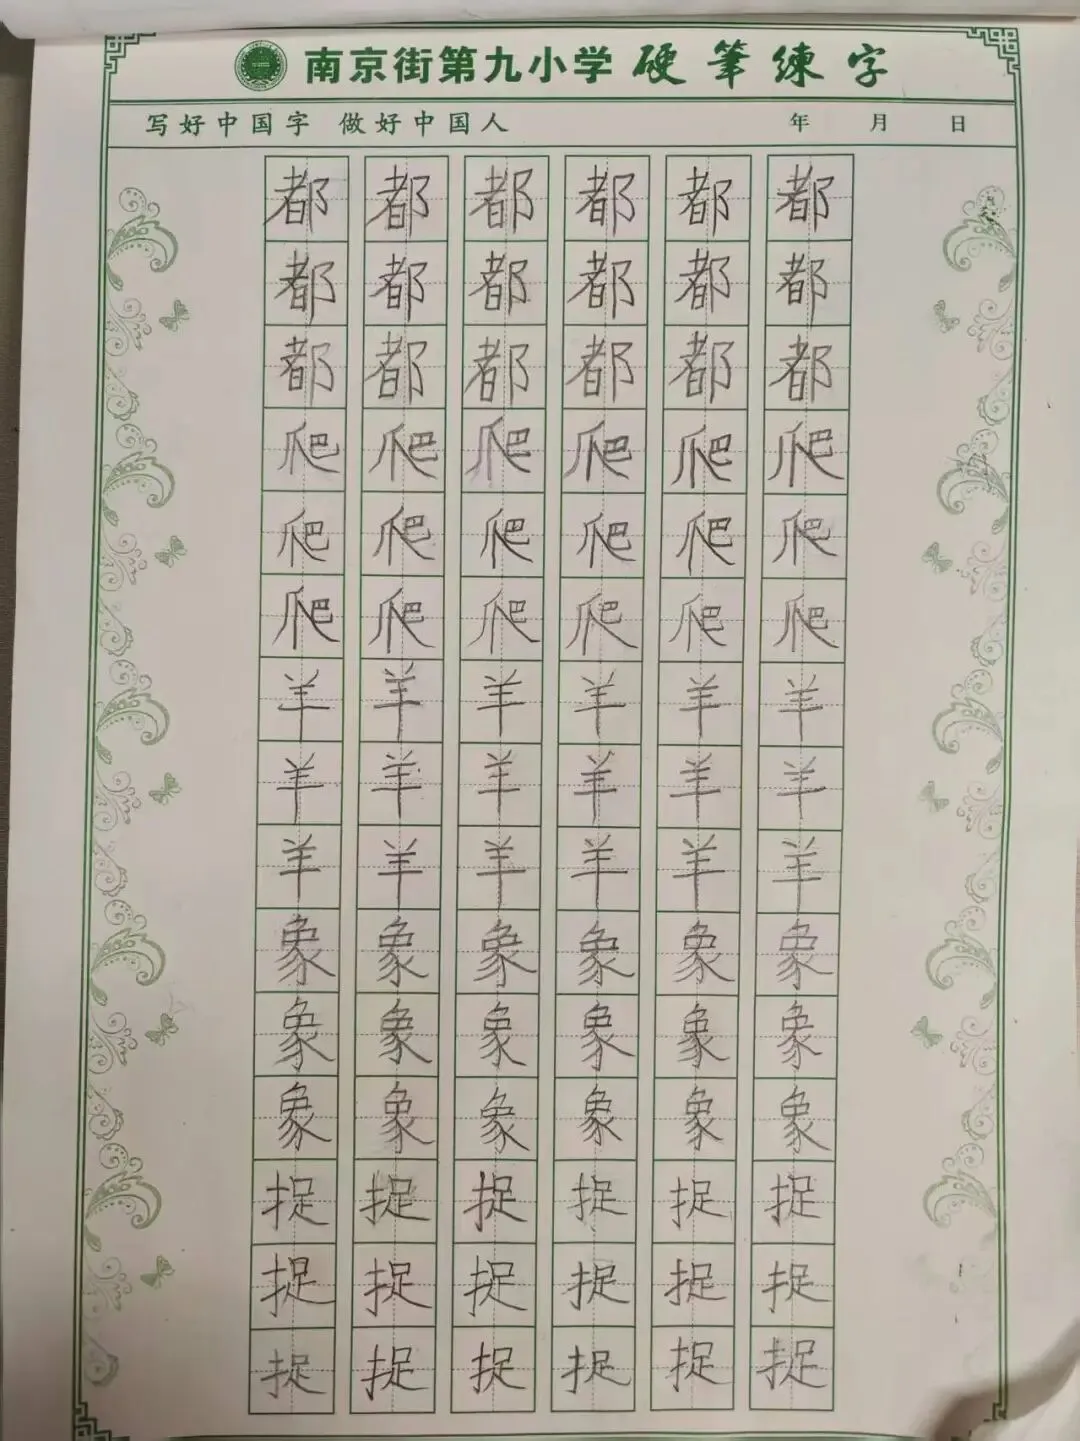 南京街第九小学 硬筆練字
写好中国字 做好中国人 年 月 日
都 都 都 都 都 都
都 都 都 都 都 都
都 都 都 都 都 都
爬 爬 爬 爬 爬 爬
爬 爬 爬 爬 爬 爬
爬 爬 爬 爬 爬 爬
羊 羊 羊 羊 羊 羊
羊 羊 羊 羊 羊 羊
羊 羊 羊 羊 羊 羊
象 象 象 象 象 象
象 象 象 象 象 象
象 象 象 象 象 象
捉 捉 捉 捉 捉 捉
捉 捉 捉 捉 捉 捉
捉 捉 捉 捉 捉 捉